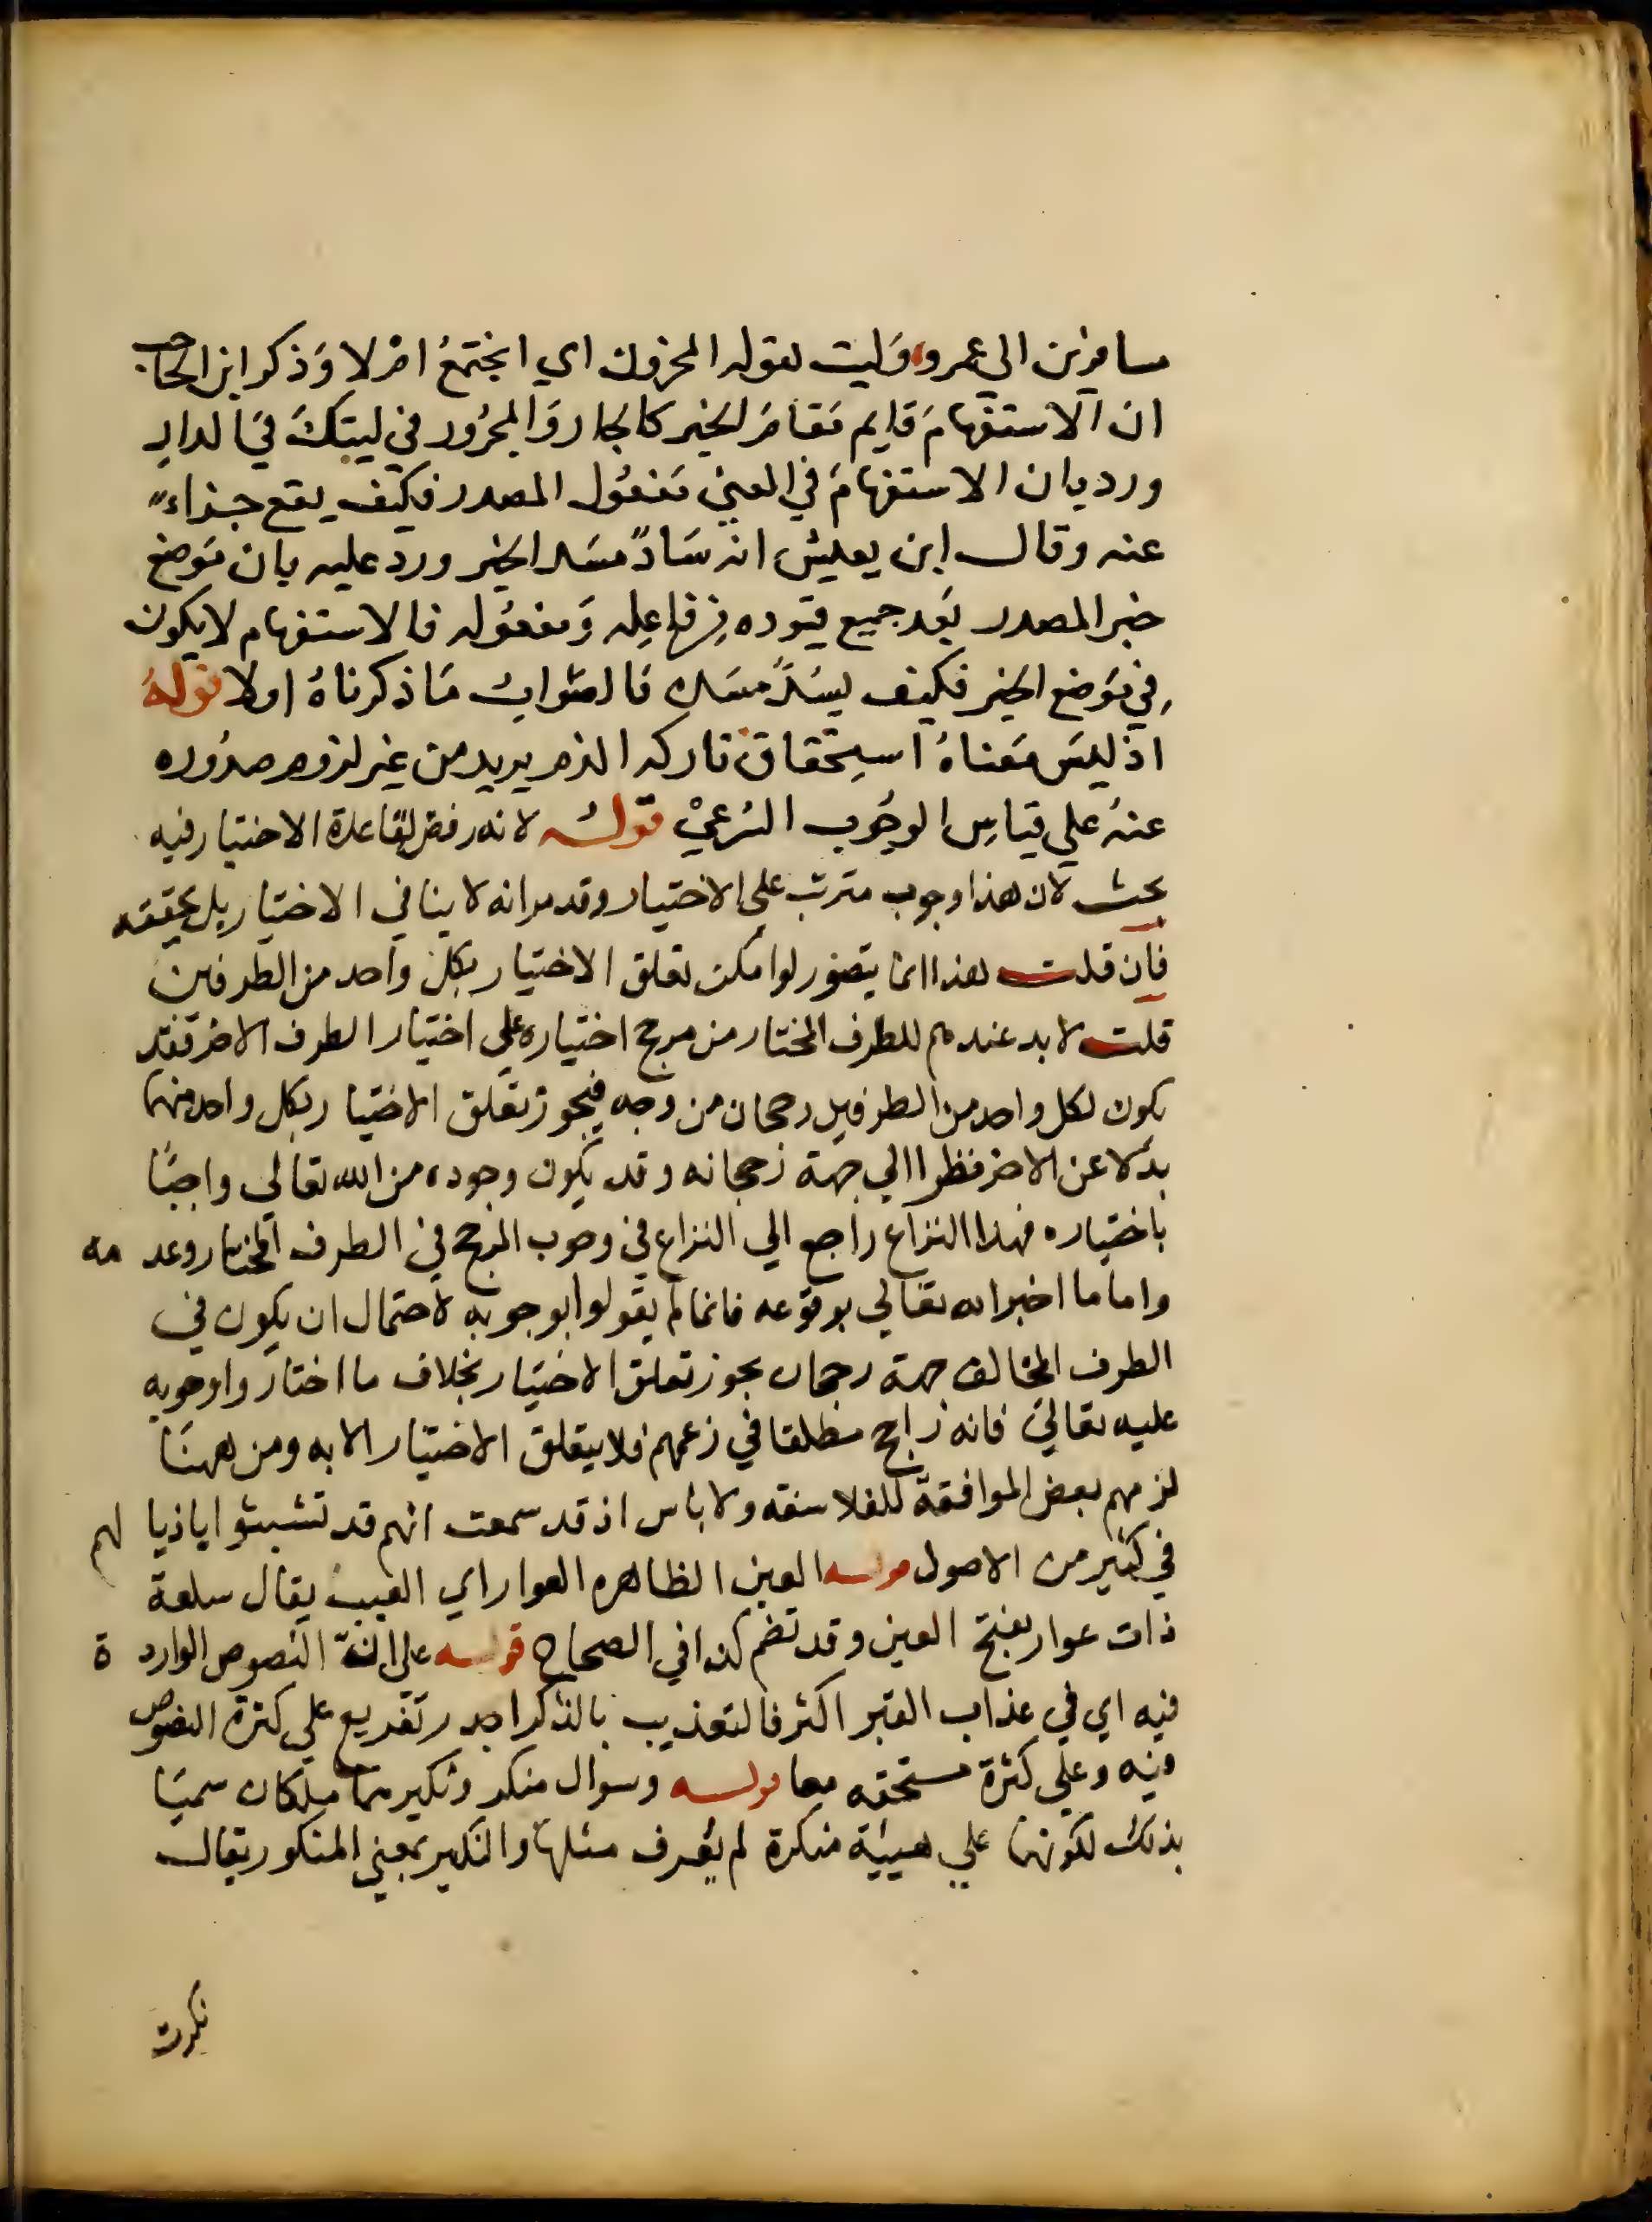 مسافر بن ابي عمرو وليت يقولها المحزون اي ايجتمع ام لا وذكر ابن الحاجب
ان الاستفهام قايم مقام الخبر كالجار والمجرور في ليتك في الدار
ورد بان الاستفهام في المعني مفعول المصدر فكيف يقع جزاء
عنه وقال ابن يعيش انه سادّ مسد الخبر ورد عليه بان موضع
خبر المصدر بعد جميع قيوده من فاعله ومفعوله فالاستفهام لا يكون
في موضع الخبر فكيف يسدّ مسده فالصواب ما ذكرناه اولا قوله
اذ ليس معناه استحقاق تاركه الذم يريد من غير لزوم صدوره
عنه علي قياس الوجوب الشرعي قوله لانه رفض لقاعدة الاختيار فيه
بحث لان هذا وجوب مترتب علي الاختيار وقد مر انه لا ينافي الاختيار بل يحققه
فان قلت هذا انما يتصور لو امكن تعلق الاختيار بكل واحد من الطرفين
قلت لا بد عندهم للطرف المختار من مرجح اختياره علي اختيار الطرف الاخر فقد
يكون لكل واحد من الطرفين رجحان من وجه فيجوز تعلق الاختيار بكل واحد منهما
بدلا عن الاخر نظرا الي جهة رجحانه وقد يكون وجوده من الله تعالي واجبا
باختياره فهذا النزاع راجع الي النزاع في وجوب المرجح في الطرف المختار وعدمه
واما ما اخبر الله تعالي بوقوعه فانما لم يقولوا بوجوبه لاحتمال ان يكون في
الطرف المخالف جهة رجحان يجوز تعلق الاختيار بخلاف ما اختاروا وجوبه
عليه تعالي فانه راجح مطلقا في زعمهم فلا يتعلق الاختيار الا به ومن ههنا
لزمهم بعض الموافقة للفلاسفه ولا باس اذ قد سمعت انهم قد تشبثوا باذيالهم
في كثير من الاصول قوله العين الظاهره العوار اي العيب يقال سلعة
ذات عوار بفتح العين وقد تضم كذا في الصحاح قوله علي ان النصوص الواردة
فيه اي في عذاب القبر اكثر فالتعذيب بالذكر اجدر تفريع علي كثرة النصوص
فيه وعلي كثرة مستحقه معا قوله وسوال منكر ونكير هما ملكان سميا
بذلك لكونهما علي هيئة منكرة لم يعرف مثلها والنكير بمعني المنكور يقال
نكرت